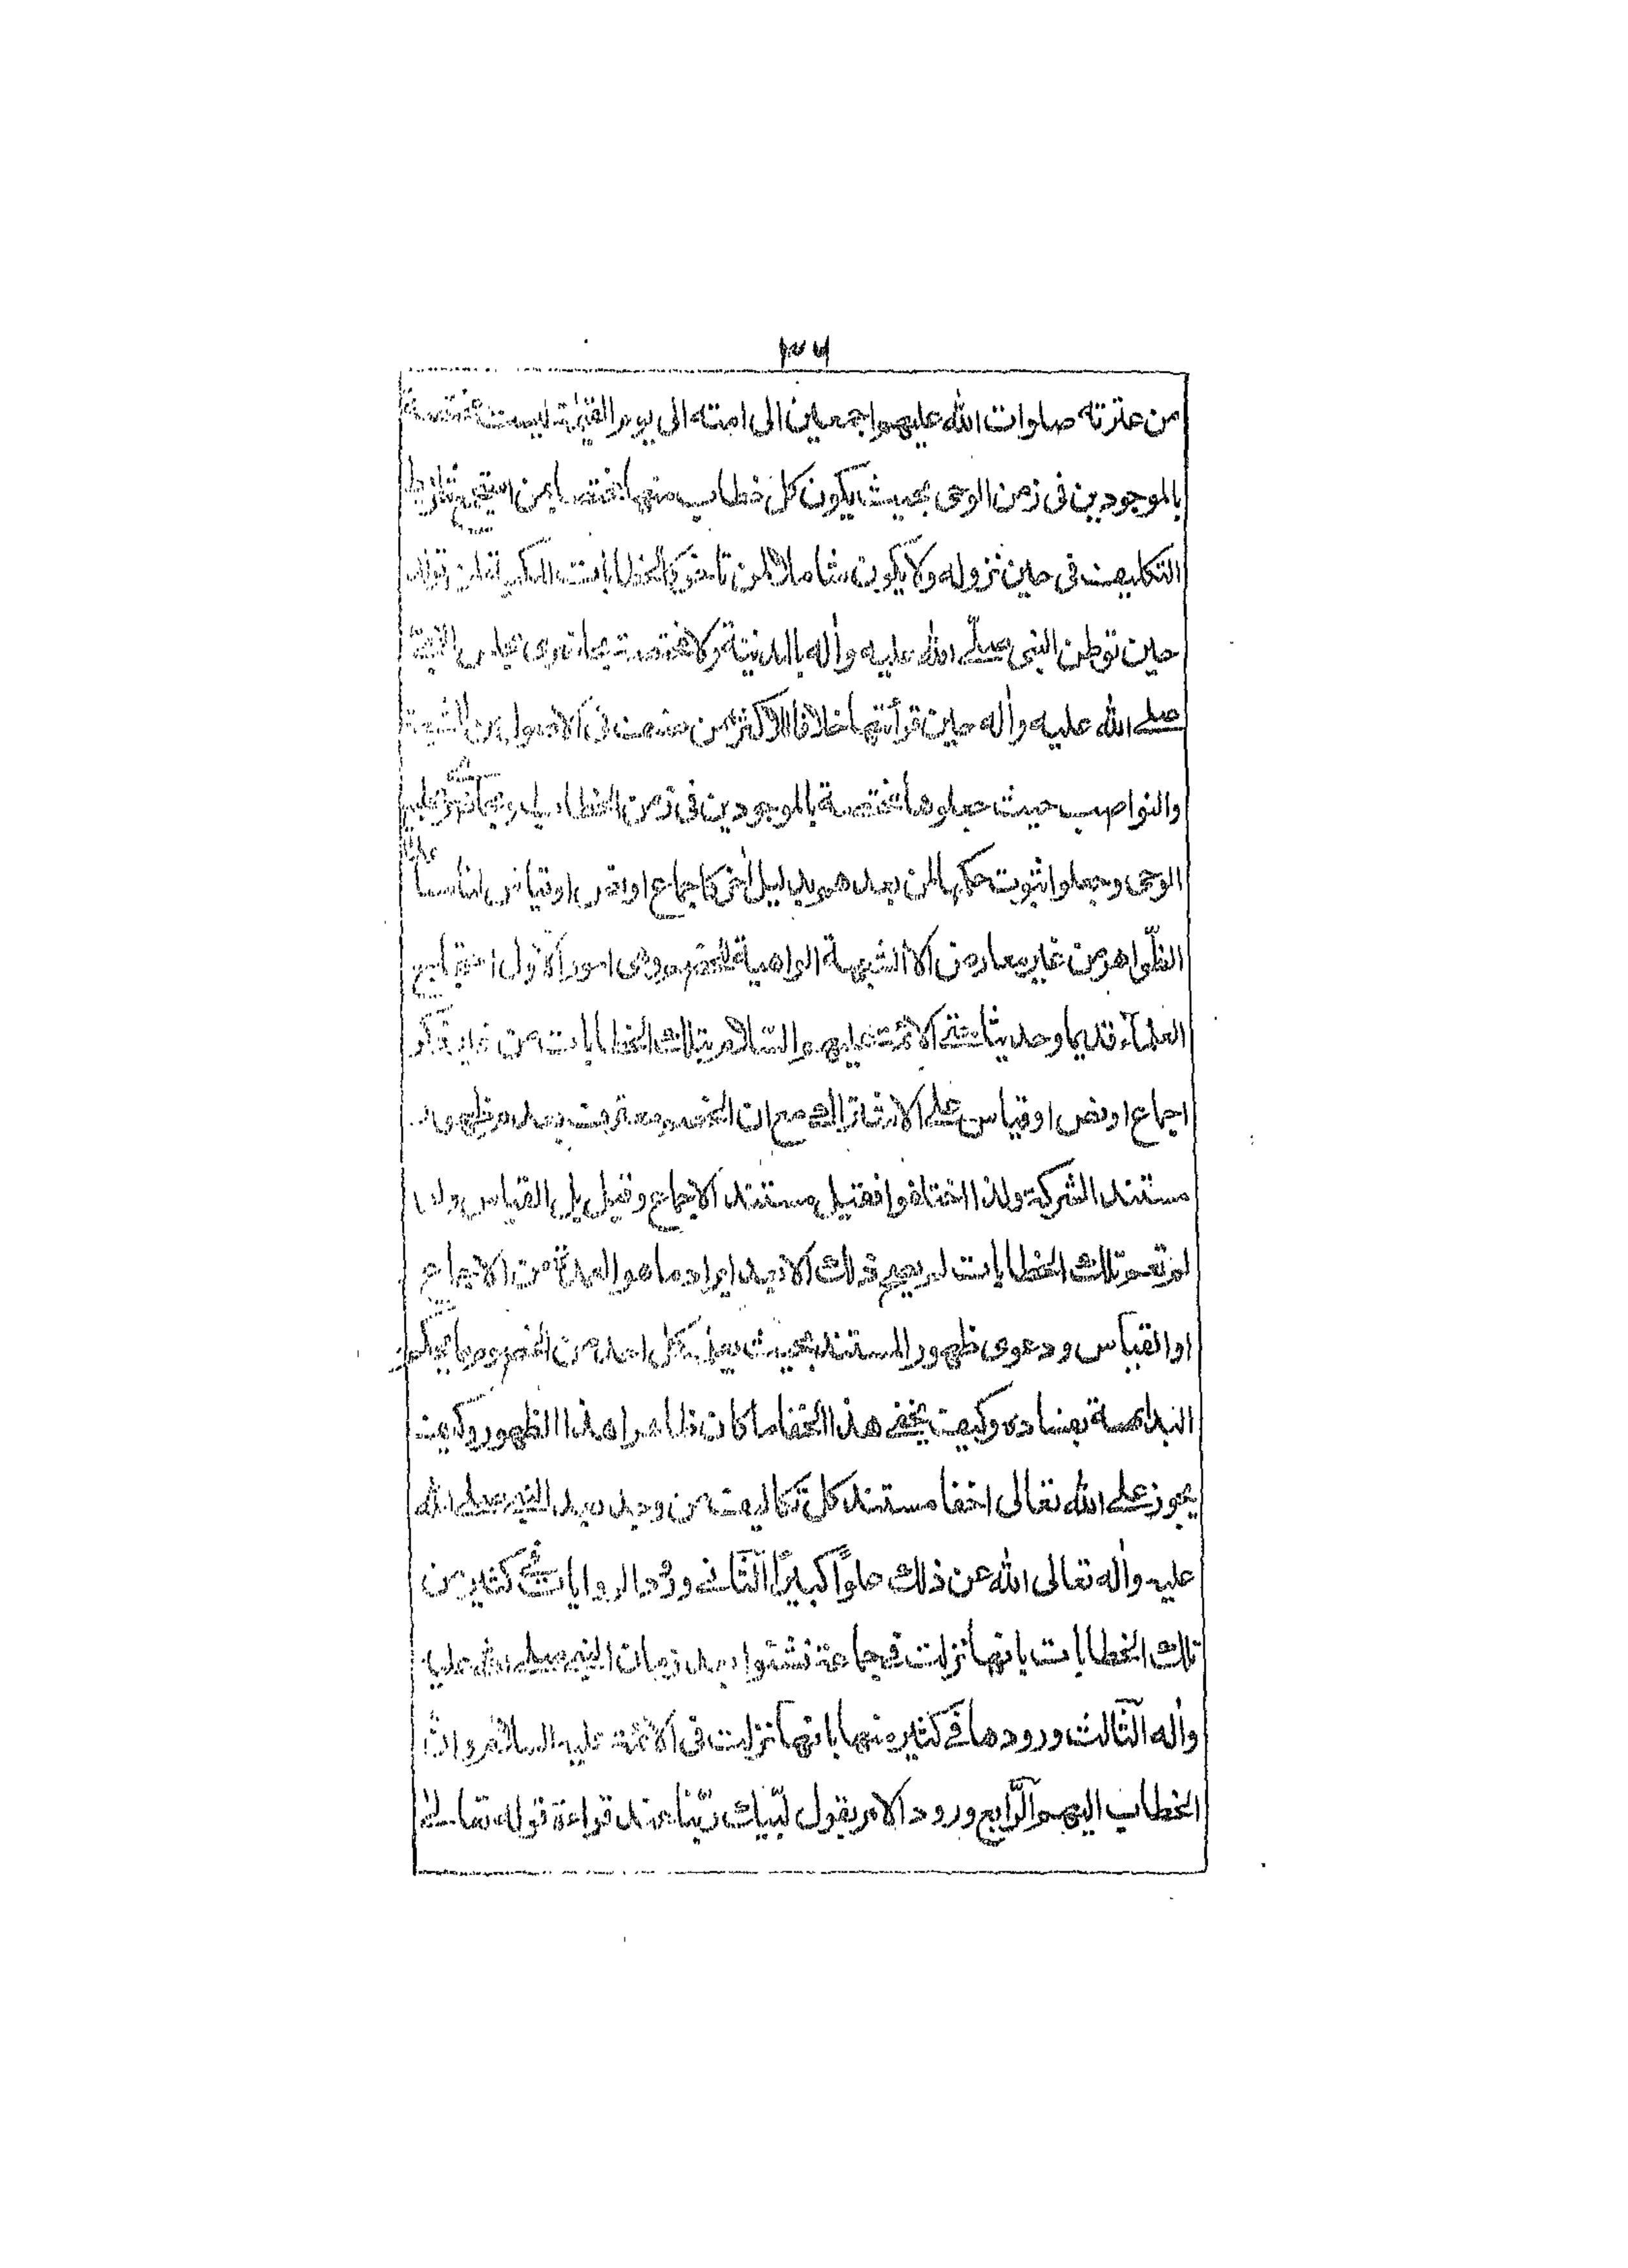 ١٣٦
من عترته صلوات الله عليهم اجمعين الى امته الى يوم القيٰمة ليست مختصة
بالموجودين فى زمن الوحى بحيث يكون كل خطاب منها مختصا بمن استجمع شرايط
التكليف فى حين نزوله ولا يكون شاملا لمن تاخر كالخطابات المكية لمن تولد
حين توطن النبى صلے الله عليه واٰله بالمدينة ولا مختصة بحاضرى مجلس النبى
صلے الله عليه واٰله حين قرأتها خلافا لاكثر من صنف فى الاصول من الشيعة
والنواصب حيث جعلوها مختصة بالموجودين فى زمن الخطاب
الوحى وجعلوا ثبوت حكمها لمن بعدهم بدليل اٰخر كاجماع او نص او قياس لنا
الظواهر من غير معارض الا الشبهة الواهية للخصم وهى امور الاول احتجاج
العلمآء قديما وحديثا حتے الائمة عليهم السلام بتلك الخطابات من غير ذكر
اجماع او نص او قياس علے الاشتراك مع ان الخصم معترف بعدم ظهور
مستند الشركة ولذا اختلفوا فقيل مستنده الاجماع وقيل بل القياس ولو
لم تعم تلك الخطابات لم يصح ذلك الا بعد ايراد ما هو العمدة من الاجماع
او القياس ودعوى ظهور المستند بحيث يعلمه كل احد من الخصوم مما يحكم
البداهة بفساده وكيف يخفے هذا الخفا ما كان ظاهرا هذا الظهور وكيف
يجوز علے الله تعالى اخفا مستند كل تكاليف من وجد بعد النبے صلے الله
عليه واٰله تعالى الله عن ذلك علوًا كبيرًا الثانے ورود الروايات فے كثير من
تلك الخطابات بانها نزلت فے جماعة نشئوا بعد زمان النبے صلے الله عليه
واٰله الثالث ورودها فے كثير منها بانها نزلت فى الائمة عليهم السلام وان
الخطاب اليهم الرابع ورود الامر بقول لبّيك ربّنا عند قراءة قوله تعالےٰ